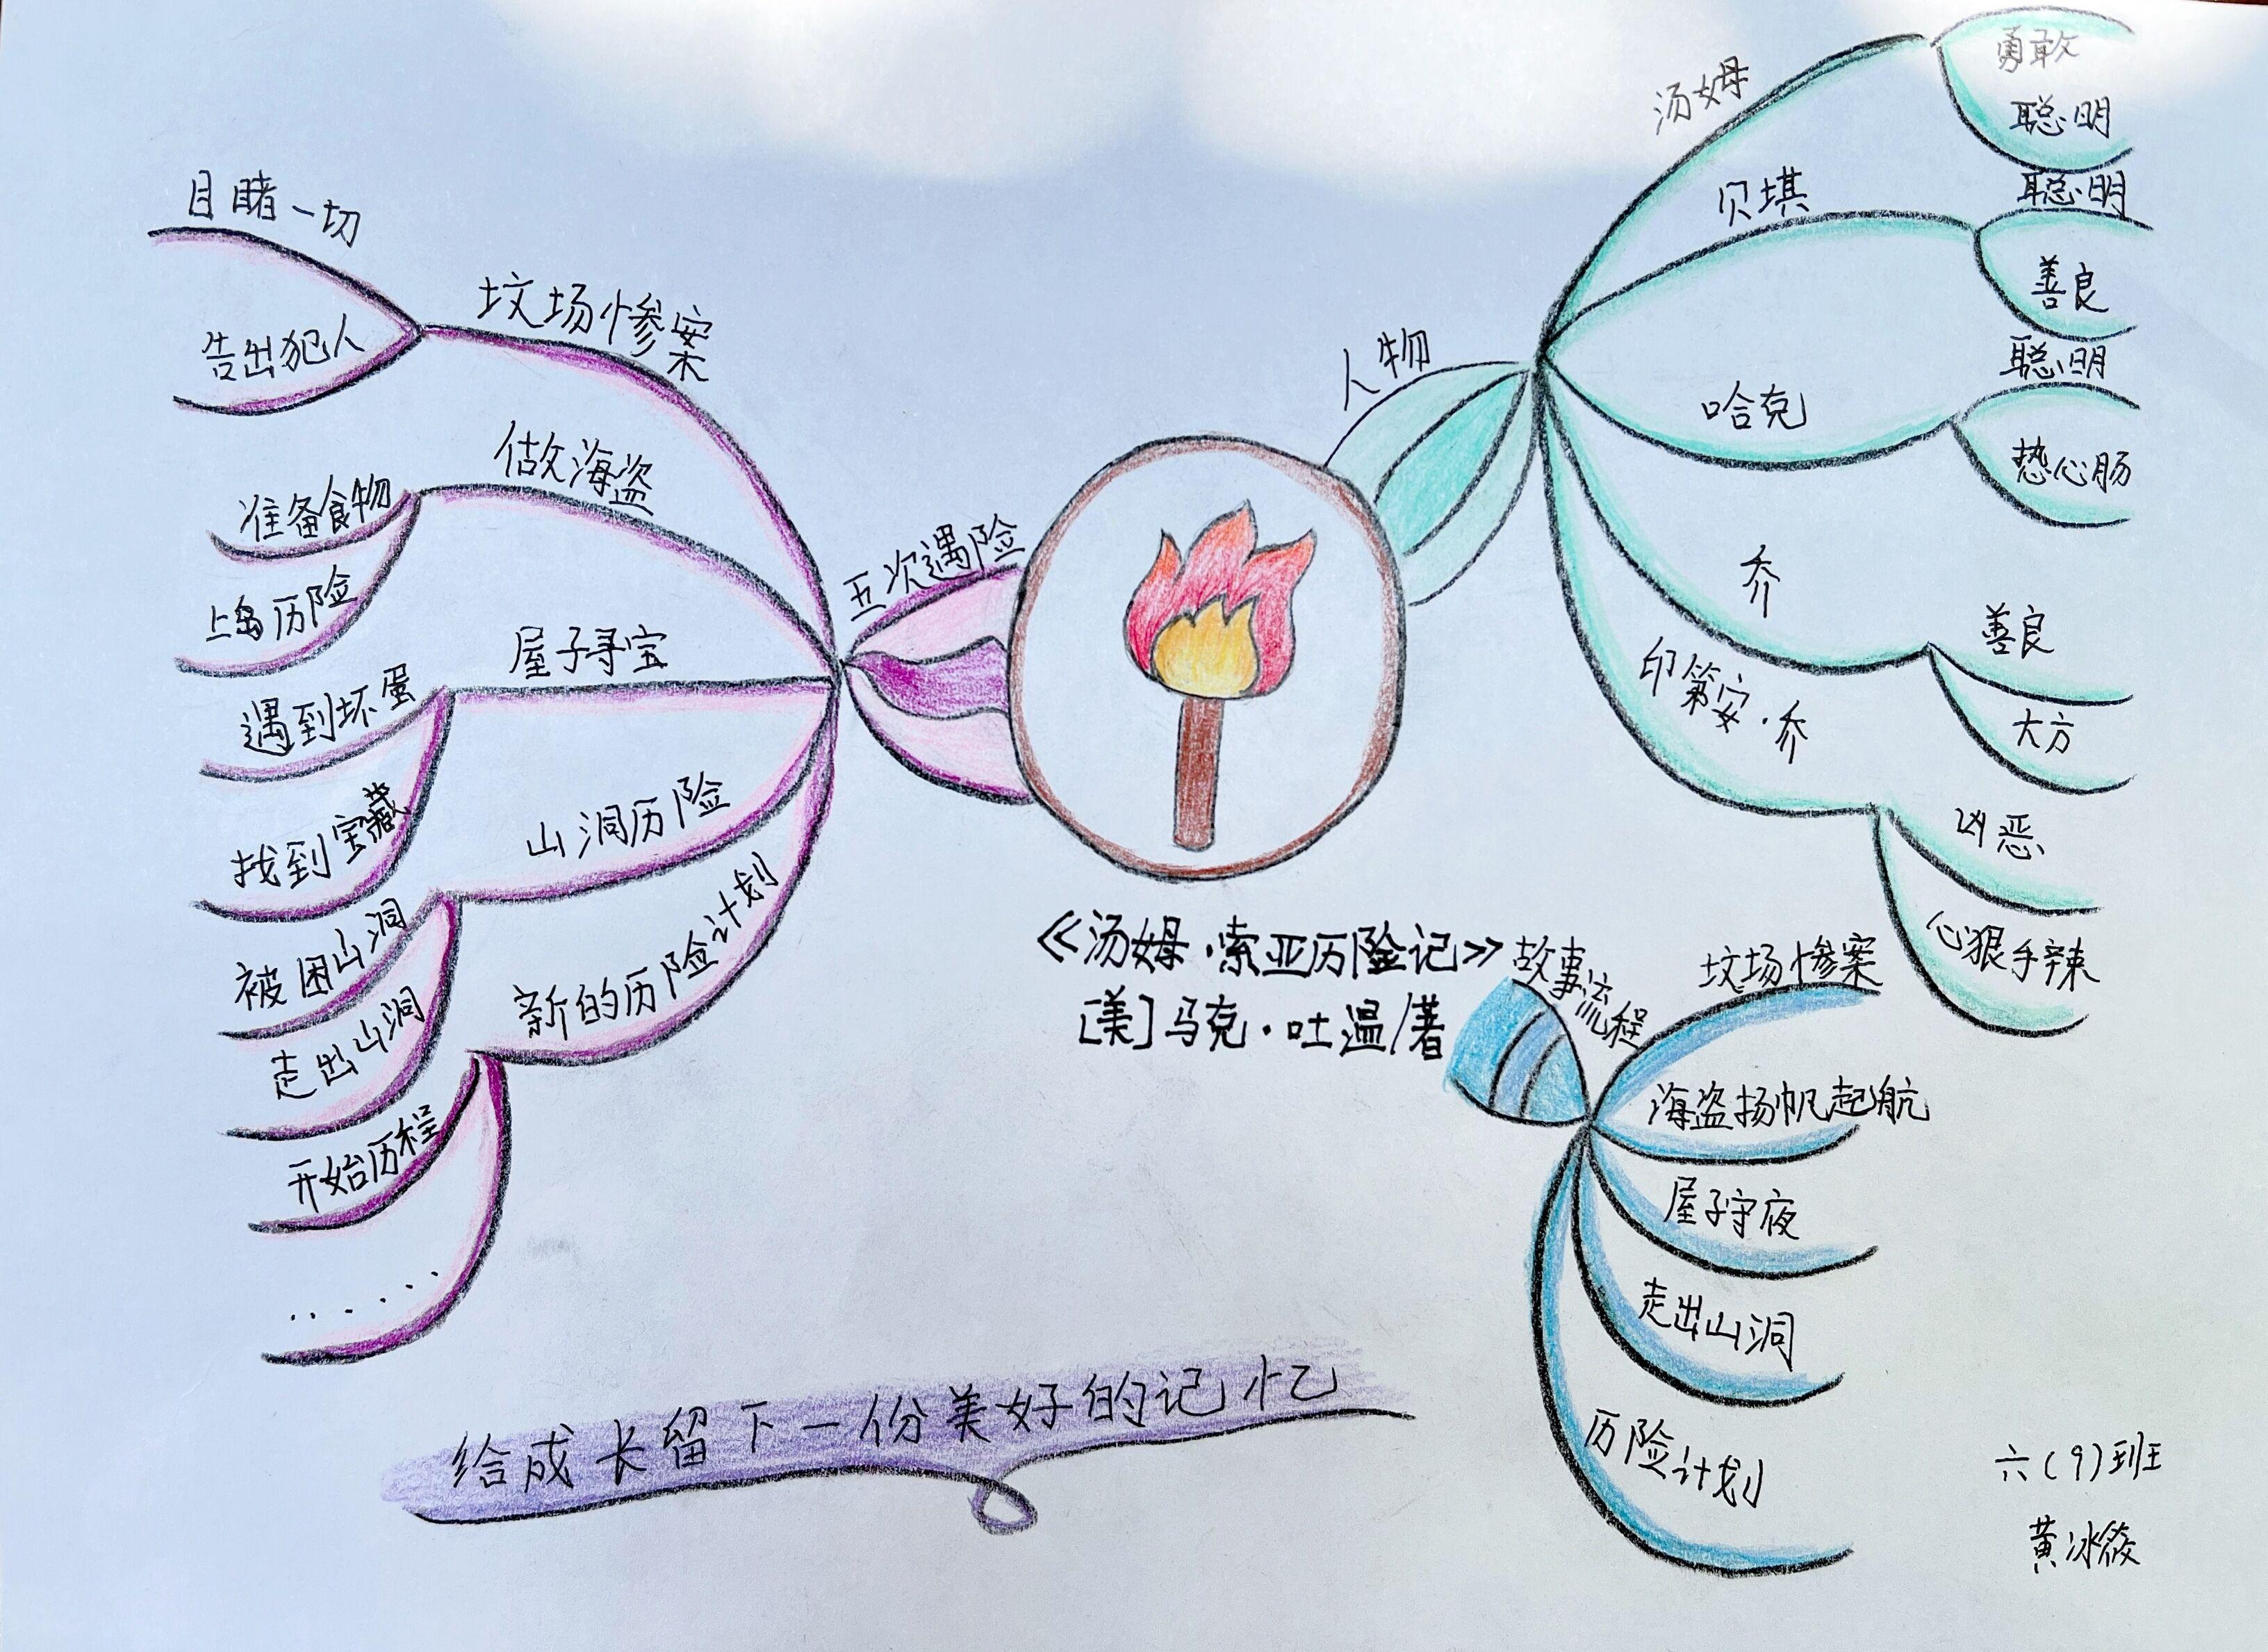 《汤姆·索亚历险记》
[美]马克·吐温/著
人物
汤姆
勇敢
聪明
贝琪
聪明
善良
哈克
聪明
热心肠
乔
善良
大方
印第安·乔
凶恶
心狠手辣
故事流程
坟场惨案
海盗扬帆起航
屋子守夜
走出山洞
历险计划
五次遇险
坟场惨案
目睹一切
告出犯人
做海盗
准备食物
上岛历险
屋子寻宝
遇到坏蛋
找到宝藏
山洞历险
被困山洞
走出山洞
新的历险计划
开始历程
······
给成长留下一份美好的记忆
六(9)班
黄冰筱